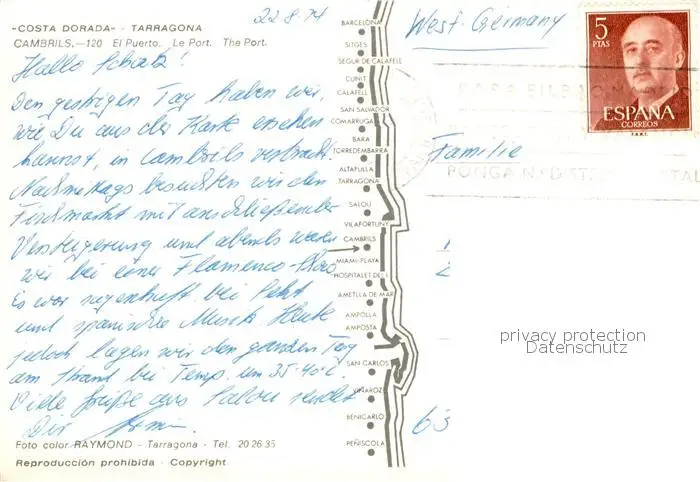 -COSTA DORADA- - TARRAGONA
CAMBRILS.-120 El Puerto. Le Port. The Port.
22.8.74
Hallo Schatz!
Den gestrigen Tag haben wir,
wie Du aus der Karte ersehen
kannst, in Cambrils verbracht.
Nachmittags besuchten wir den
Fischmarkt mit anschließender
Versteigerung und abends waren
wir bei einer Flamenco-Show.
Es war sagenhaft bei Sekt
und spanische Musik. Heute
jedoch lagen wir den ganzen Tag
am Strand bei Temp. um 35-40°C.
Viele Grüße aus Salou sendet
Dir
Foto color RAYMOND - Tarragona - Tel. 20 26 35
Reproducción prohibida - Copyright
BARCELONA
SITGES
SEGUR DE CALAFELL
CUNIT
CALAFELL
SAN SALVADOR
COMARRUGA
BARA
TORREDEMBARRA
ALTAFULLA
TARRAGONA
SALOU
VILAFORTUNY
CAMBRILS
MIAMI-PLAYA
HOSPITALET DEL I.
AMETLLA DE MAR
AMPOLLA
AMPOSTA
SAN CARLOS
VINAROZ
BENICARLO
PEÑISCOLA
West-Germany
5
PTAS
ESPAÑA
CORREOS
F.N.M.T.
PONGA N.º DISTRITO POSTAL
Familie
63
privacy protection
Datenschutz